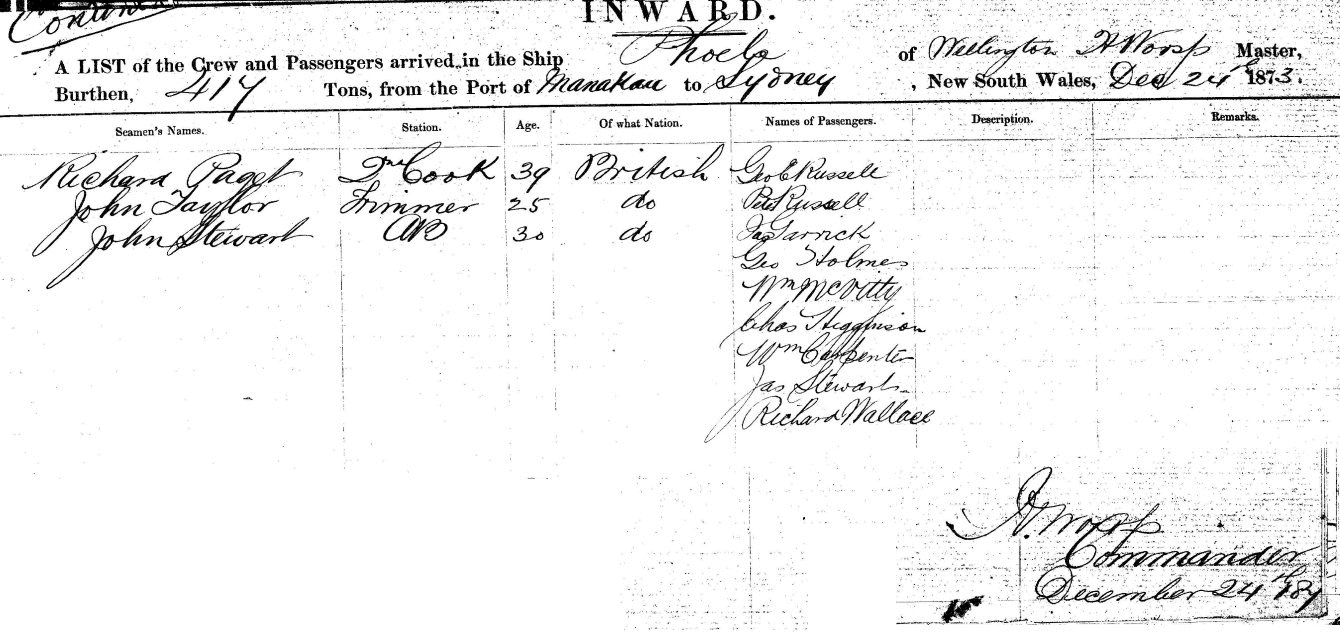 Continued
INWARD.
A LIST of the Crew and Passengers arrived in the Ship Phoebe of Wellington H Worsp Master,
Burthen, 417 Tons, from the Port of Manakau to Sydney, New South Wales, Dec 24th 1873.
Seamen's Names. Station. Age. Of what Nation. Names of Passengers. Description. Remarks.
Richard Paget Cook 39 British Geo E Russell
John Taylor Trimmer 25 do Russell
John Stewart AB 30 do Jas
Geo Holmes
Wm McVitty
Chas Higginson
Wm Carpenter
Jas Stewart
Richard Wallace
H. Worsp
Commander
December 24th 187